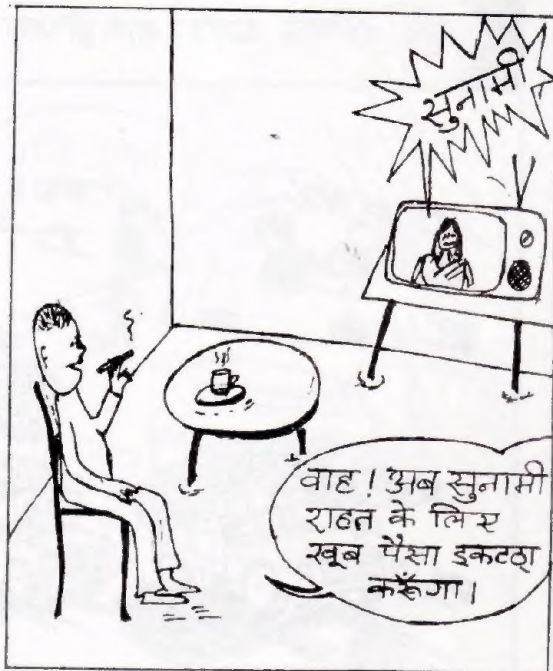 सुनामी
वाह! अब सुनामी
राहत के लिए
खूब पैसा इकटठा
करूँगा।